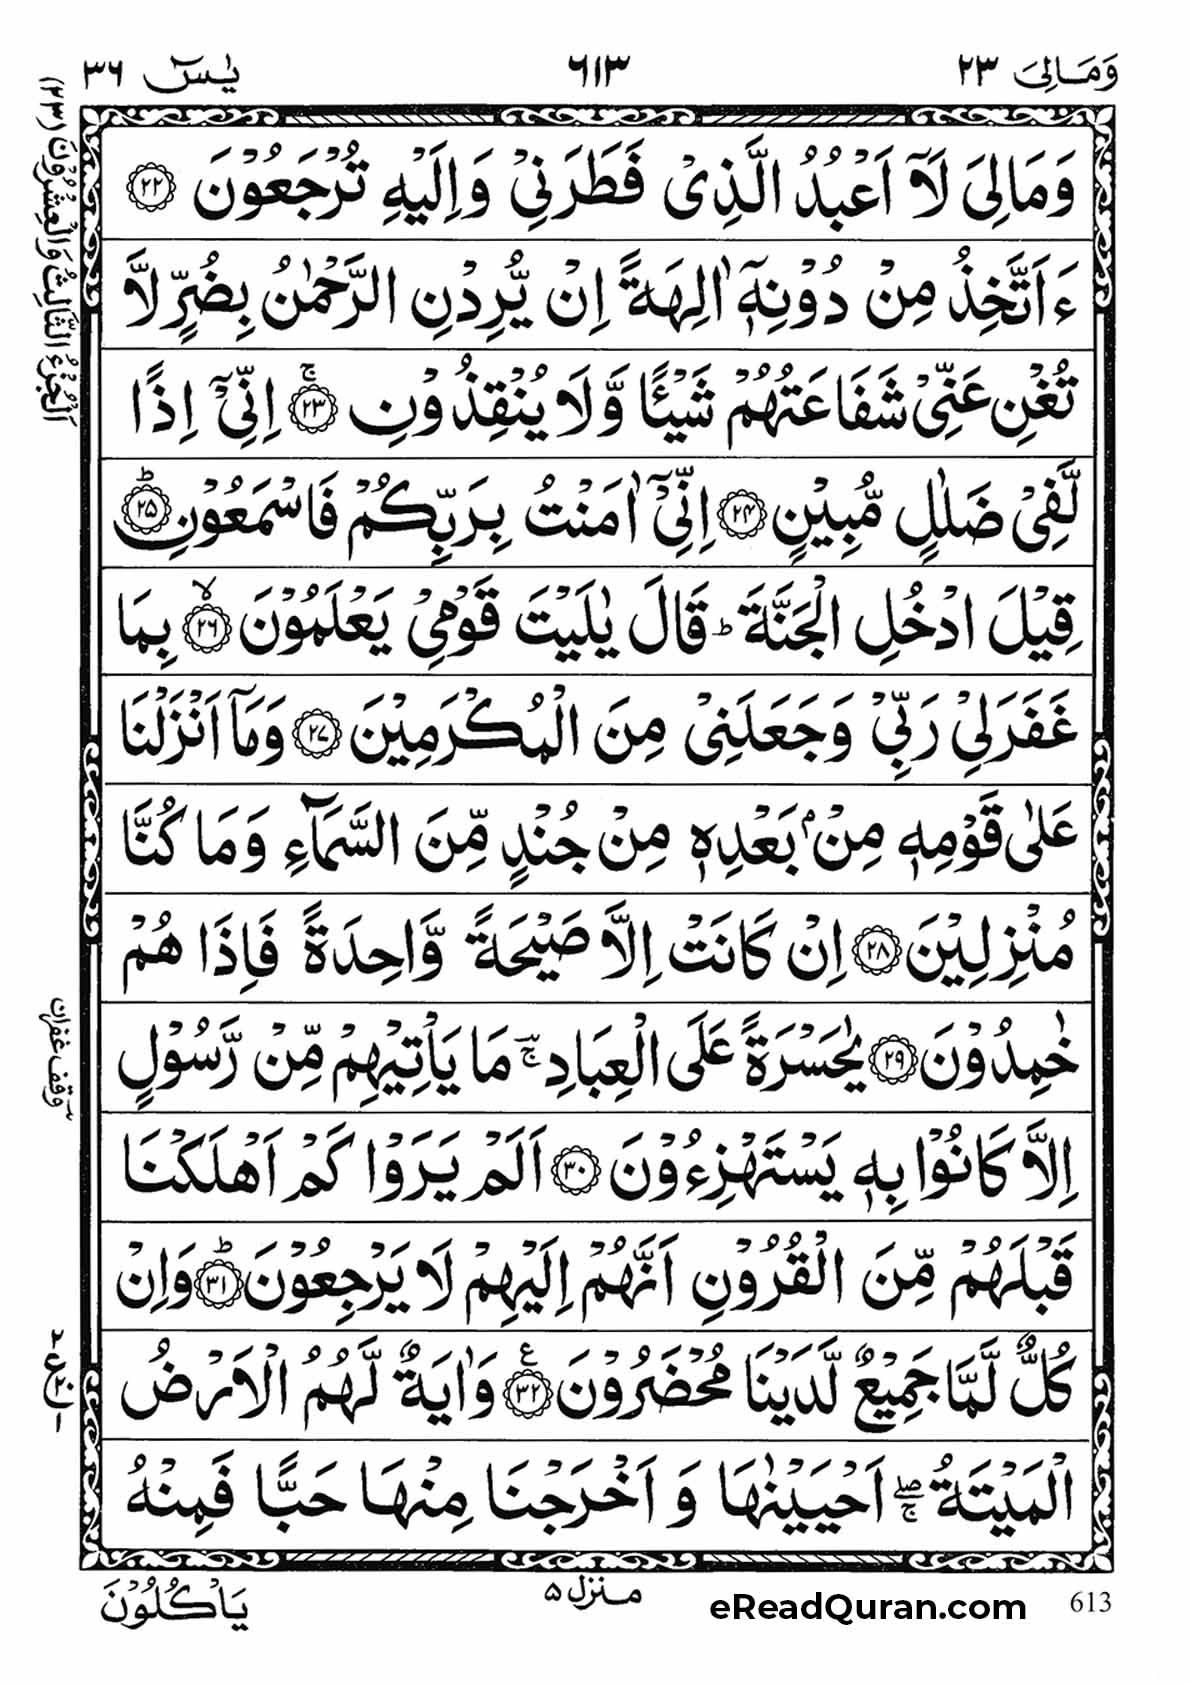 وَمَالِیَ ٢٣
٦١٣
يٰسٓ ٣٦
اَلْجُزْءُ الثَّالِثُ وَالْعِشْرُوْنَ (٢٣)
وَمَالِیَ لَآ اَعْبُدُ الَّذِیْ فَطَرَنِیْ وَاِلَیْهِ تُرْجَعُوْنَ ٢٢
ءَاَتَّخِذُ مِنْ دُوْنِهٖٓ اٰلِهَةً اِنْ یُّرِدْنِ الرَّحْمٰنُ بِضُرٍّ لَّا
تُغْنِ عَنِّیْ شَفَاعَتُهُمْ شَیْـًٔا وَّلَا یُنْقِذُوْنِ ۚ ٢٣ اِنِّیْٓ اِذًا
لَّفِیْ ضَلٰلٍ مُّبِیْنٍ ٢٤ اِنِّیْٓ اٰمَنْتُ بِرَبِّكُمْ فَاسْمَعُوْنِ ؕ ٢٥
قِیْلَ ادْخُلِ الْجَنَّةَ ؕ قَالَ یٰلَیْتَ قَوْمِیْ یَعْلَمُوْنَ ۙ ٢٦ بِمَا
غَفَرَلِیْ رَبِّیْ وَجَعَلَنِیْ مِنَ الْمُكْرَمِیْنَ ٢٧ وَمَآ اَنْزَلْنَا
عَلٰی قَوْمِهٖ مِنْۢ بَعْدِهٖ مِنْ جُنْدٍ مِّنَ السَّمَآءِ وَمَا كُنَّا
مُنْزِلِیْنَ ٢٨ اِنْ كَانَتْ اِلَّا صَیْحَةً وَّاحِدَةً فَاِذَا هُمْ
خٰمِدُوْنَ ٢٩ یٰحَسْرَةً عَلَی الْعِبَادِ ۚ مَا یَاْتِیْهِمْ مِّنْ رَّسُوْلٍ
وقف غفران
اِلَّا كَانُوْا بِهٖ یَسْتَهْزِءُوْنَ ٣٠ اَلَمْ یَرَوْا كَمْ اَهْلَكْنَا
قَبْلَهُمْ مِّنَ الْقُرُوْنِ اَنَّهُمْ اِلَیْهِمْ لَا یَرْجِعُوْنَ ؕ ٣١ وَاِنْ
كُلٌّ لَّمَّا جَمِیْعٌ لَّدَیْنَا مُحْضَرُوْنَ ع ٣٢ وَاٰیَةٌ لَّهُمُ الْاَرْضُ
الْمَیْتَةُ ۖۚ اَحْیَیْنٰهَا وَ اَخْرَجْنَا مِنْهَا حَبًّا فَمِنْهُ
یَاْكُلُوْنَ
منزل ٥
eReadQuran.com
613